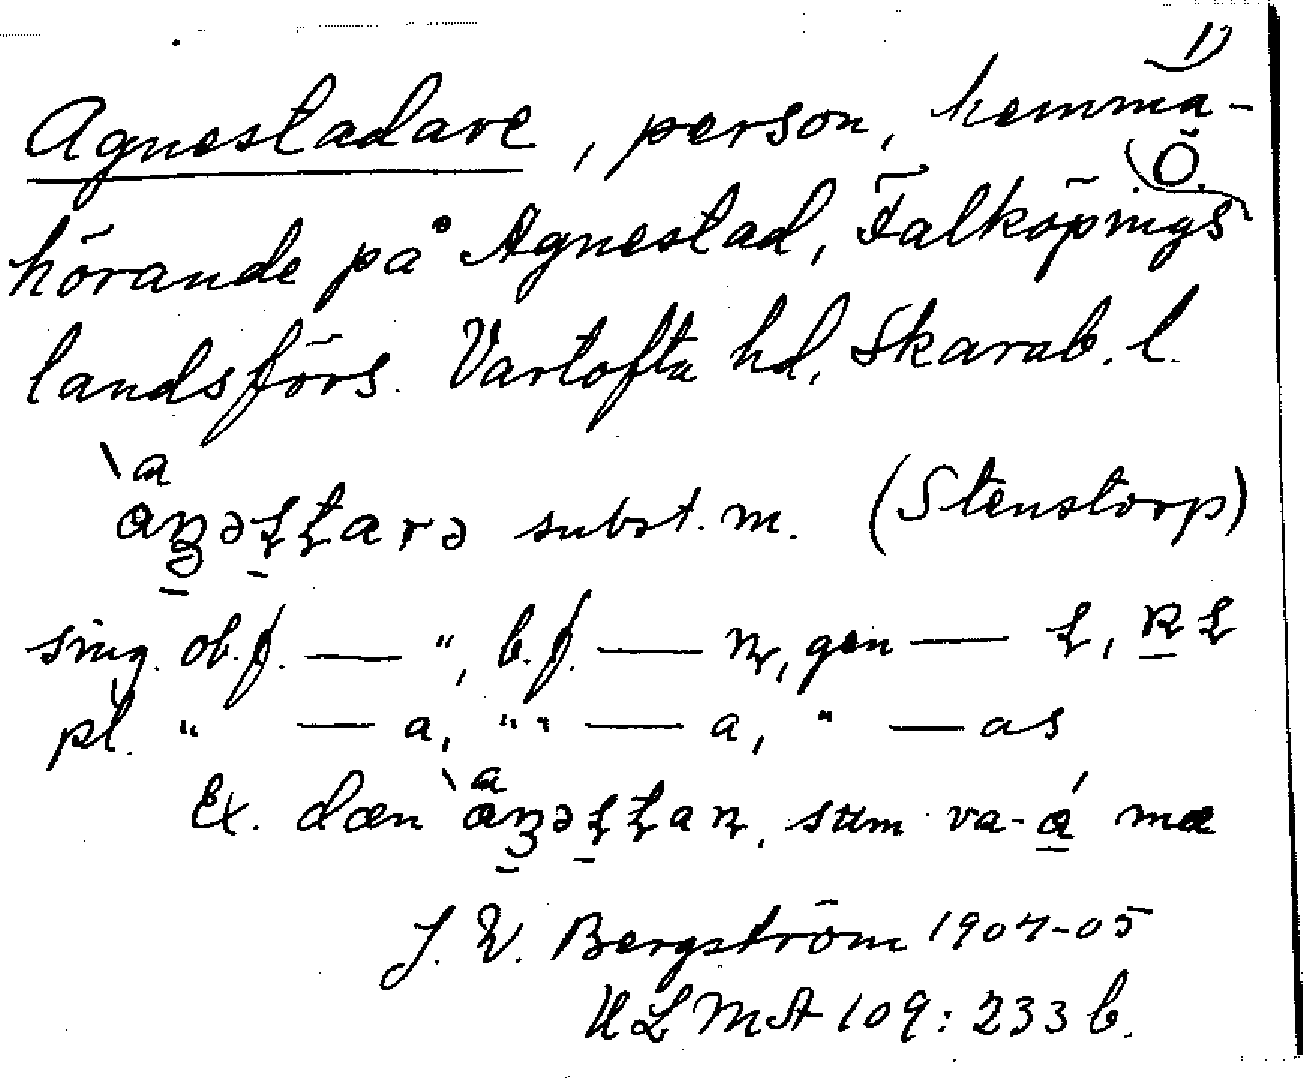 1)
Agnestadare, person, hemma-
Ö.
hörande på Agnestad, Falköpings
landsförs. Vartofta hd, Skarab. l.
subst. m. (Stenstorp)
sing. ob.f. — ", b.f. — gen —
pl. " — a, " " — a, " — as
Ex. dæn va- mæ
J. V. Bergström 1904-05
ULMA 109:233 b.